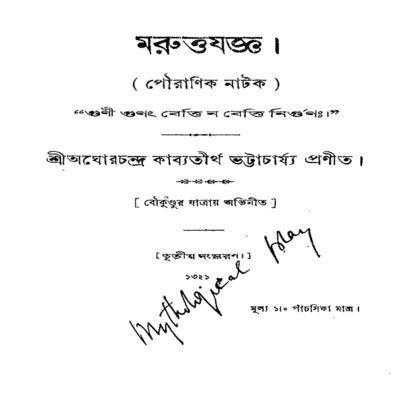 মরুত্তযজ্ঞ।
( পৌরাণিক নাটক )
“গুণী গুণং বেত্তি ন বেত্তি নির্গুণঃ।”
শ্রীঅঘোরচন্দ্র কাব্যতীর্থ ভট্টাচার্য্য প্রণীত।
[ বৌকুণ্ডুর যাত্রায় অভিনীত ]
[ তৃতীয় সংস্করণ। ]
১৩২১
Mythological play
মূল্য ১।০ পাঁচসিকা মাত্র।